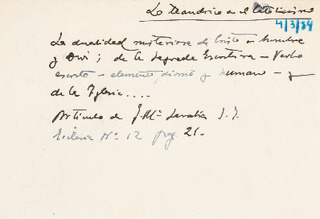 Lo teandrico en el Catolicismo
4/3/84
La dualidad misteriosa de Cristo - hombre
y Dios; de la Sagrada Escritura - Verbo
escrito - elemento divino y humano - y
de la Iglesia....
Artículo de J. Mª S. J.
Ecclesia Nº 12 pag 21.-